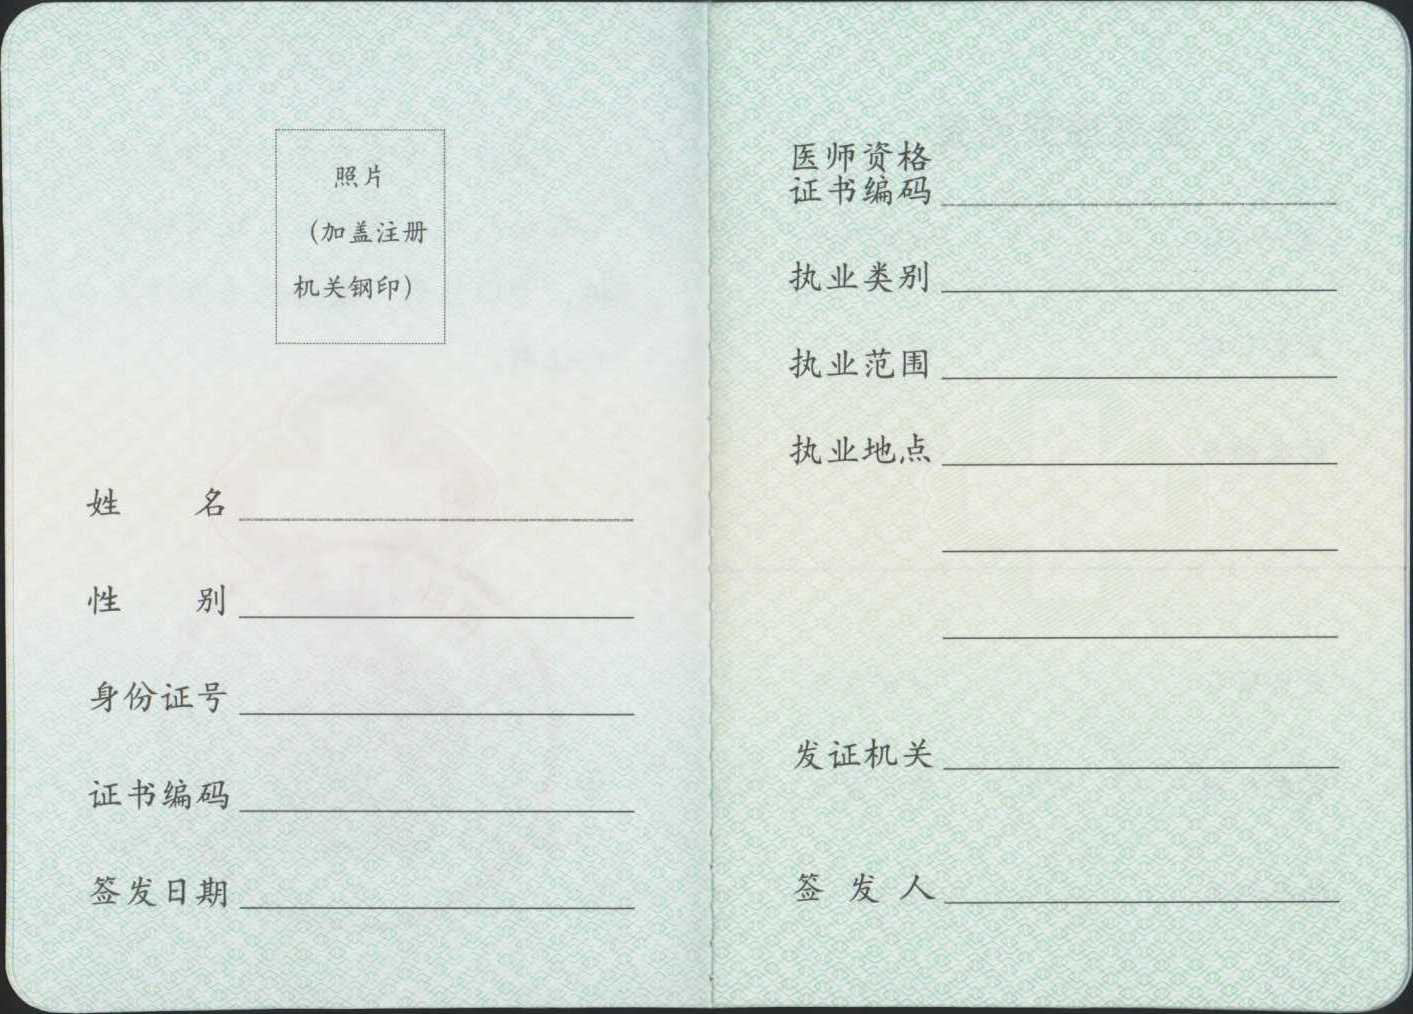 照片
（加盖注册
机关钢印）
姓 名
性 别
身份证号
证书编码
签发日期
医师资格
证书编码
执业类别
执业范围
执业地点
发证机关
签 发 人